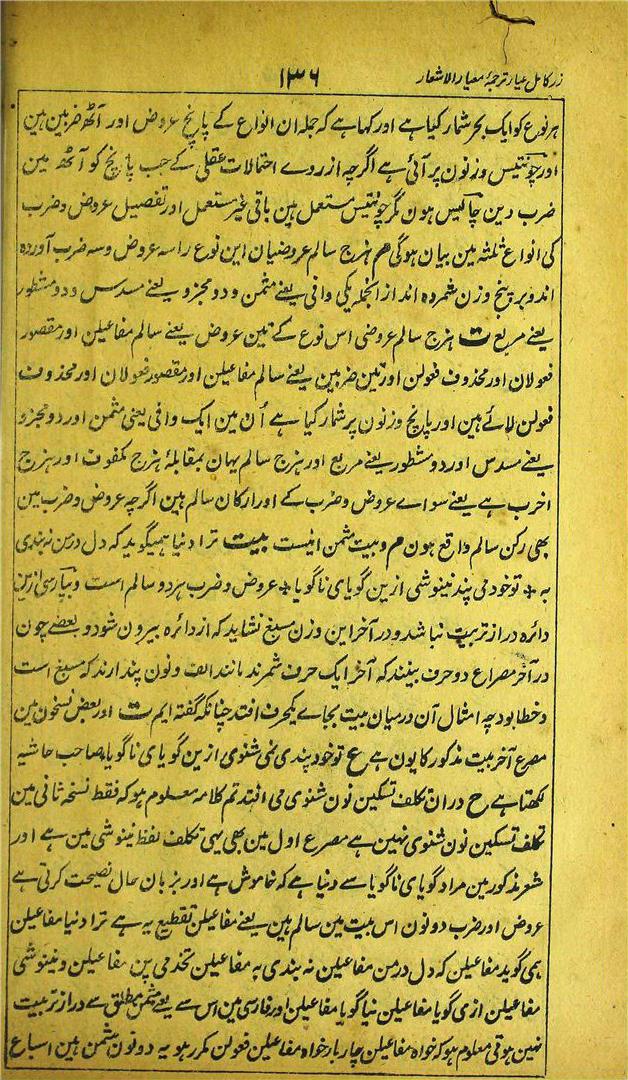 زر کامل عیار ترجمۂ معیار الاشعار ۱۳۶
ہر نوع کو ایک بحر شمار کیا ہے اور کہا ہے کہ جملہ ان انواع کے پانچ عروض اور آٹھ ضربین ہین
اور چونتیس وزنون پر آئی ہے اگرچہ از روے احتمالات عقلی کے جب پانچ کو آٹھ مین
ضرب دین چالیس ہون مگر چونتیس مستعمل ہین باقی غیر مستعمل اور تفصیل عروض و ضرب
کی انواع ثلثہ مین بیان ہوگی ہم ہزج سالم عروضیان این نوع را سہ عروض و سہ ضرب آوردہ
اند و بر پنج وزن شمردہ اند از انجملہ یکی وافی یعنے مثمن و دو مجزو یعنے مسدس و دو مشطور
یعنے مربع ت ہزج سالم عروضی اس نوع کے تین عروض یعنے سالم مفاعیلن اور مقصور
فعولان اور محذوف فعولن اور تین ضربین یعنے سالم مفاعیلن اور مقصور فعولان اور محذوف
فعولن لائے ہین اور پانچ وزنون پر شمار کیا ہے اُن مین ایک وافی یعنی مثمن اور دو مجزو
یعنے مسدس اور دو مشطور یعنے مربع اور ہزج سالم یہان بمقابلۂ ہزج مکفوف اور ہزج
اخرب ہے یعنے سواے عروض و ضرب کے اور ارکان سالم ہین اگرچہ عروض و ضرب مین
بھی رکن سالم واقع ہون م و بیت مثمن اینست بیت ترا دنیا ہمیگوید کہ دل در من نہ بندی
بہ * تو خود می پند نینوشی ازین گویای ناگویا * عروض و ضرب ہر دو سالم است و بپارسی ازین
دائرہ دراز تر بیت نباشد و در آخر این وزن مسبغ نشاید کہ از دائرہ بیرون شود و بعضے چون
در آخر مصراع دو حرف بینند کہ آخر ایک حرف شمرند مانند الف و نون پندارند کہ مسبغ است
و خطا بود چہ امثال آن در میان بیت بجاے یکحرف افتد چنانکہ گفتہ ایم ت اور بعض نسخون مین
مصرع آخر بیت مذکور کا یون ہے ع تو خود پندی نمی شنوی ازین گویای ناگویا، صاحب حاشیہ
لکھتا ہے ح در ان تکلف تسکین نون شنوی می افتد تم کلامہ معلوم ہو کہ فقط نسخۂ ثانی مین
تکلف تسکین نون شنوی نہین ہے مصرع اول مین بھی یہی تکلف لفظ نینوشی مین ہے اور
شعر مذکور مین مراد گویای ناگویا سے دنیا ہے کہ خاموش ہے اور بزبان حال نصیحت کرتی ہے
عروض اور ضرب دونون اس بیت مین سالم ہین یعنے مفاعیلن تقطیع یہ ہے ترا دنیا مفاعیلن
ہمی گوید مفاعیلن کہ دل در من مفاعیلن نہ بندی بہ مفاعیلن تخد می پن مفاعیلن و نینوشی
مفاعیلن ازی گویا مفاعیلن نیا گویا مفاعیلن اور فارسی مین اس سے یعنے مثمن مطلق سے دراز تر بیت
نہین ہوتی معلوم ہو کہ خواہ مفاعیلن چار بار خواہ مفاعیلن فعولن مکرر ہو یہ دونون مثمن ہین اسباغ